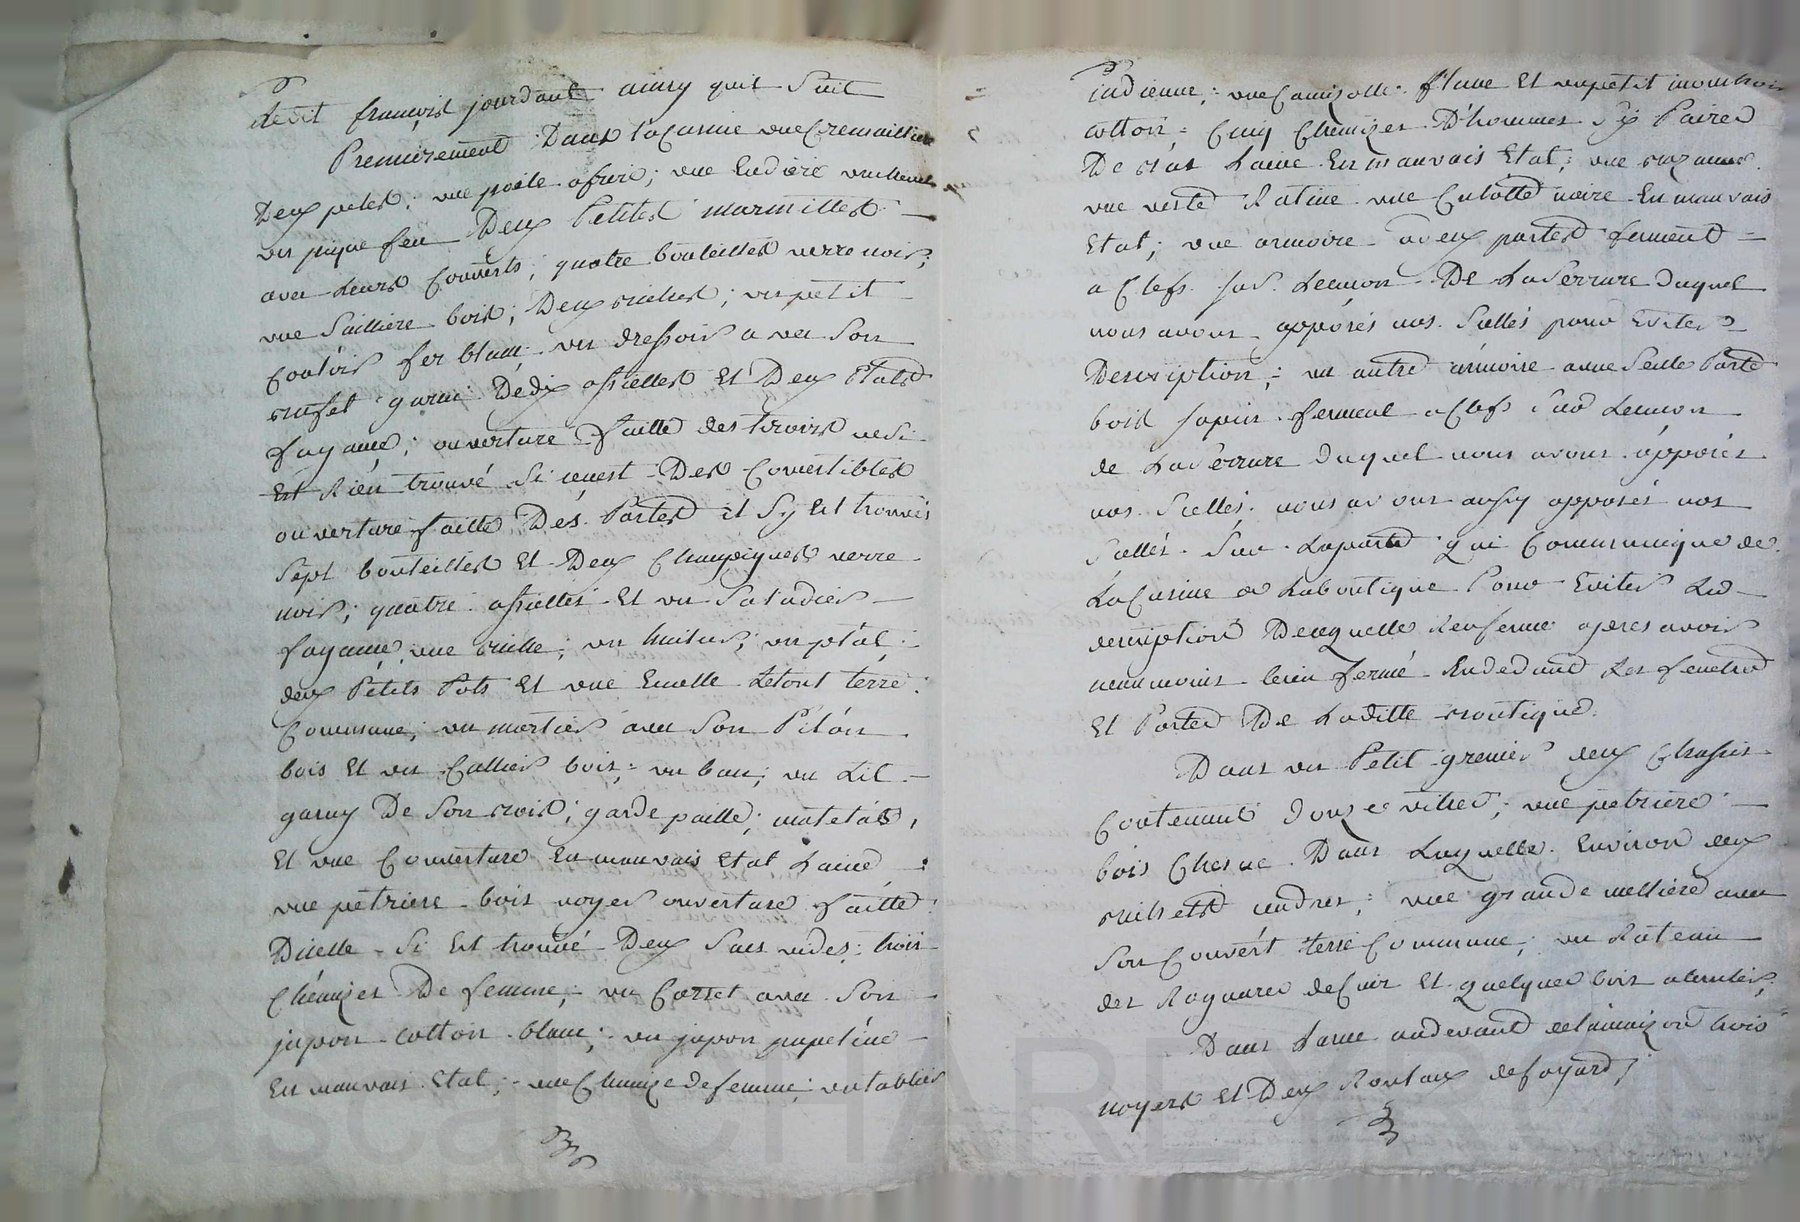 dedit françois jourdant ainsy quil Suit
Premièrement Dans la Cuisine une Cremaillere
Deux peles; une poële afrire; une
un pique feu Deux Petites marmittes
avec Leurs Couverts; quatre bouteilles verre noir;
une Salliere bois; Deux; un petit
Couloir fer blanc un dressoir avec Son
bufet garni Dedix assiettes Et Deux Plats
fayance; ouverture faitte des tiroirs nesi
Est Rien trouvé Si cenest Des Comestibles
ouverture faitte Des Portes il Sy Est trouvés
Sept bouteilles Et Deux Champagnes verre
noir; quatre assiettes Et un Saladier
fayance une; un huilier; un plat;
deux Petits Pots Et une Ecuelle Letout terre
Commune; un mortier avec Son Pilon
bois Et un Cullier bois; un banc; un Lit
garny De Son bois; garde paille; matelas,
Et une Couverture En mauvais Etat Laine
une petriere bois noyer ouverture faitte
Dicelle Si Est trouvé Deux Sacs vides; trois
Chemizes De femme; un Corset avec Son
jupon cotton blanc; un jupon papeline
En mauvais Etat; une Chemize de femme; un tablier
indienne; une Camizolle flane Et un petit mouchoir
cotton; Cinq Chemizes D'hommes Six Paires
De bas Laine En mauvais Etat; une
une veste Ratine une Culotte noire En mauvais
Etat; une armoire a deux portes ferment
a Clefs sus Lecusson De La Serrure Duquel
nous avons apposés nos Scellés pour Eviter
Description; un autre armoire aune Seulle Porte
bois sapin fermant a Clefs Sur Lecusson
de La Serrure Duquel nous avons apposés
nos Scellés; nous avons aussy apposés nos
Scellés Sur Laporte qui Communique de
La Cuisine a Laboutique Pour Eviter La
description Decequelle Renferme apres avoir
neanmoins bien fermé Endedans Les fenetres
Et Portes De Laditte boutique.
Dans un Petit grenier deux Chassis
Contenant douze vitres; une petriere
bois Chesne Dans Laquelle Environ deux
bichets cendres; une grande avec
Son Couvert terre Commune; un Rateau
des Rognures de Cuir Et quelques bois
Dans Larue audevant delamaizon trois
noyers Et Deux Rouleaux de foyard;
Pascal CHAREYRON